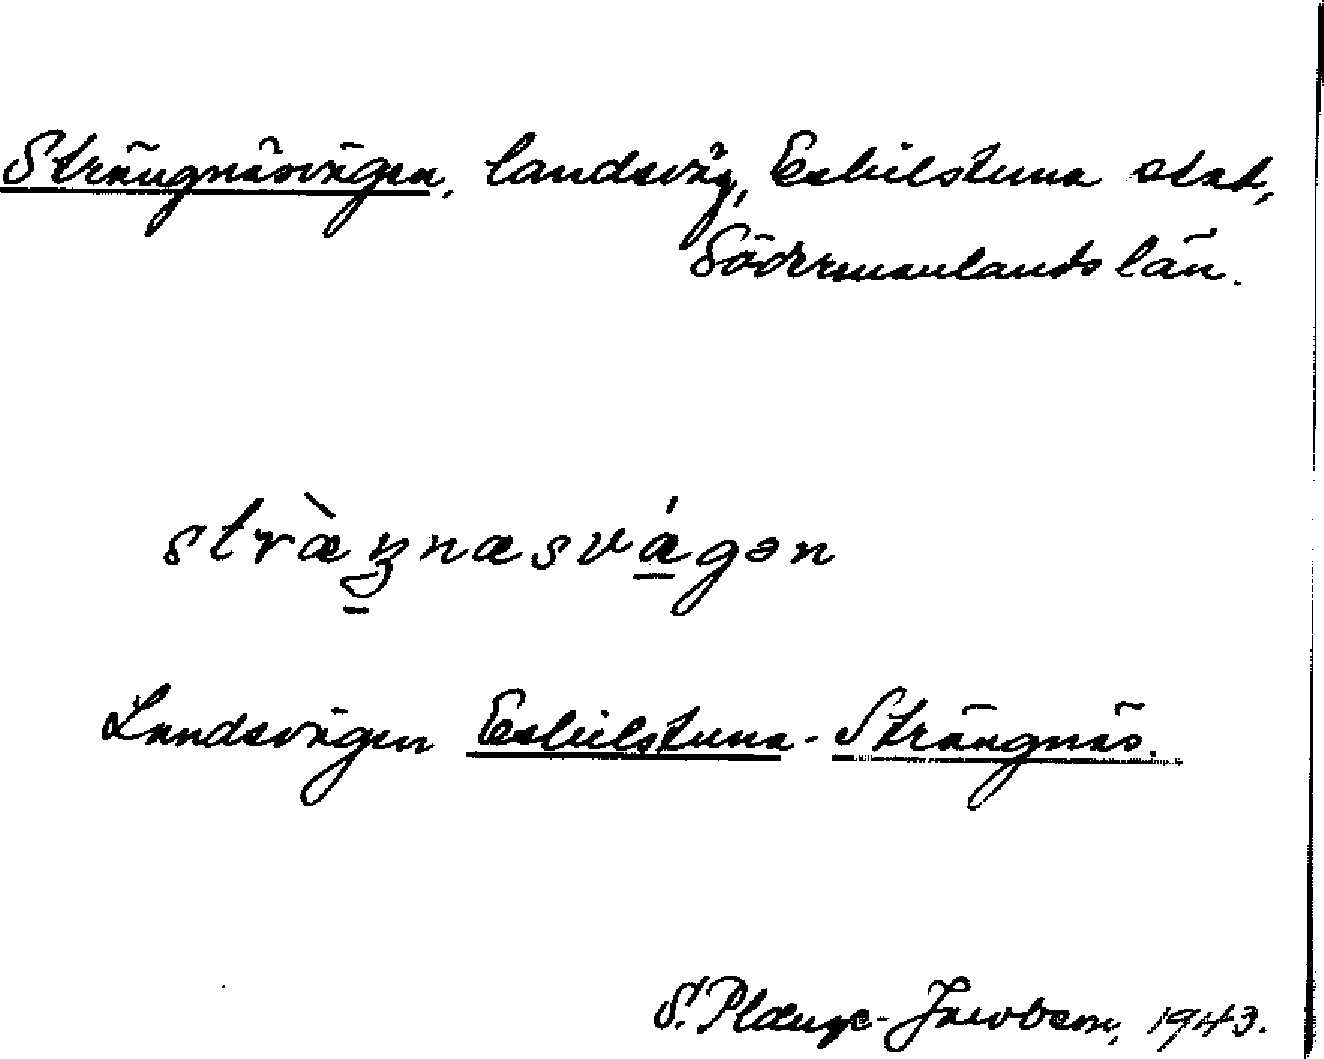 Strängnäsvägen, landsväg, Eskilstuna stad,
Södermanlands län.
stræ̀ŋnæsvá̱gən
Landsvägen Eskilstuna-Strängnäs.
S. Plænge-Jacobson, 1943.